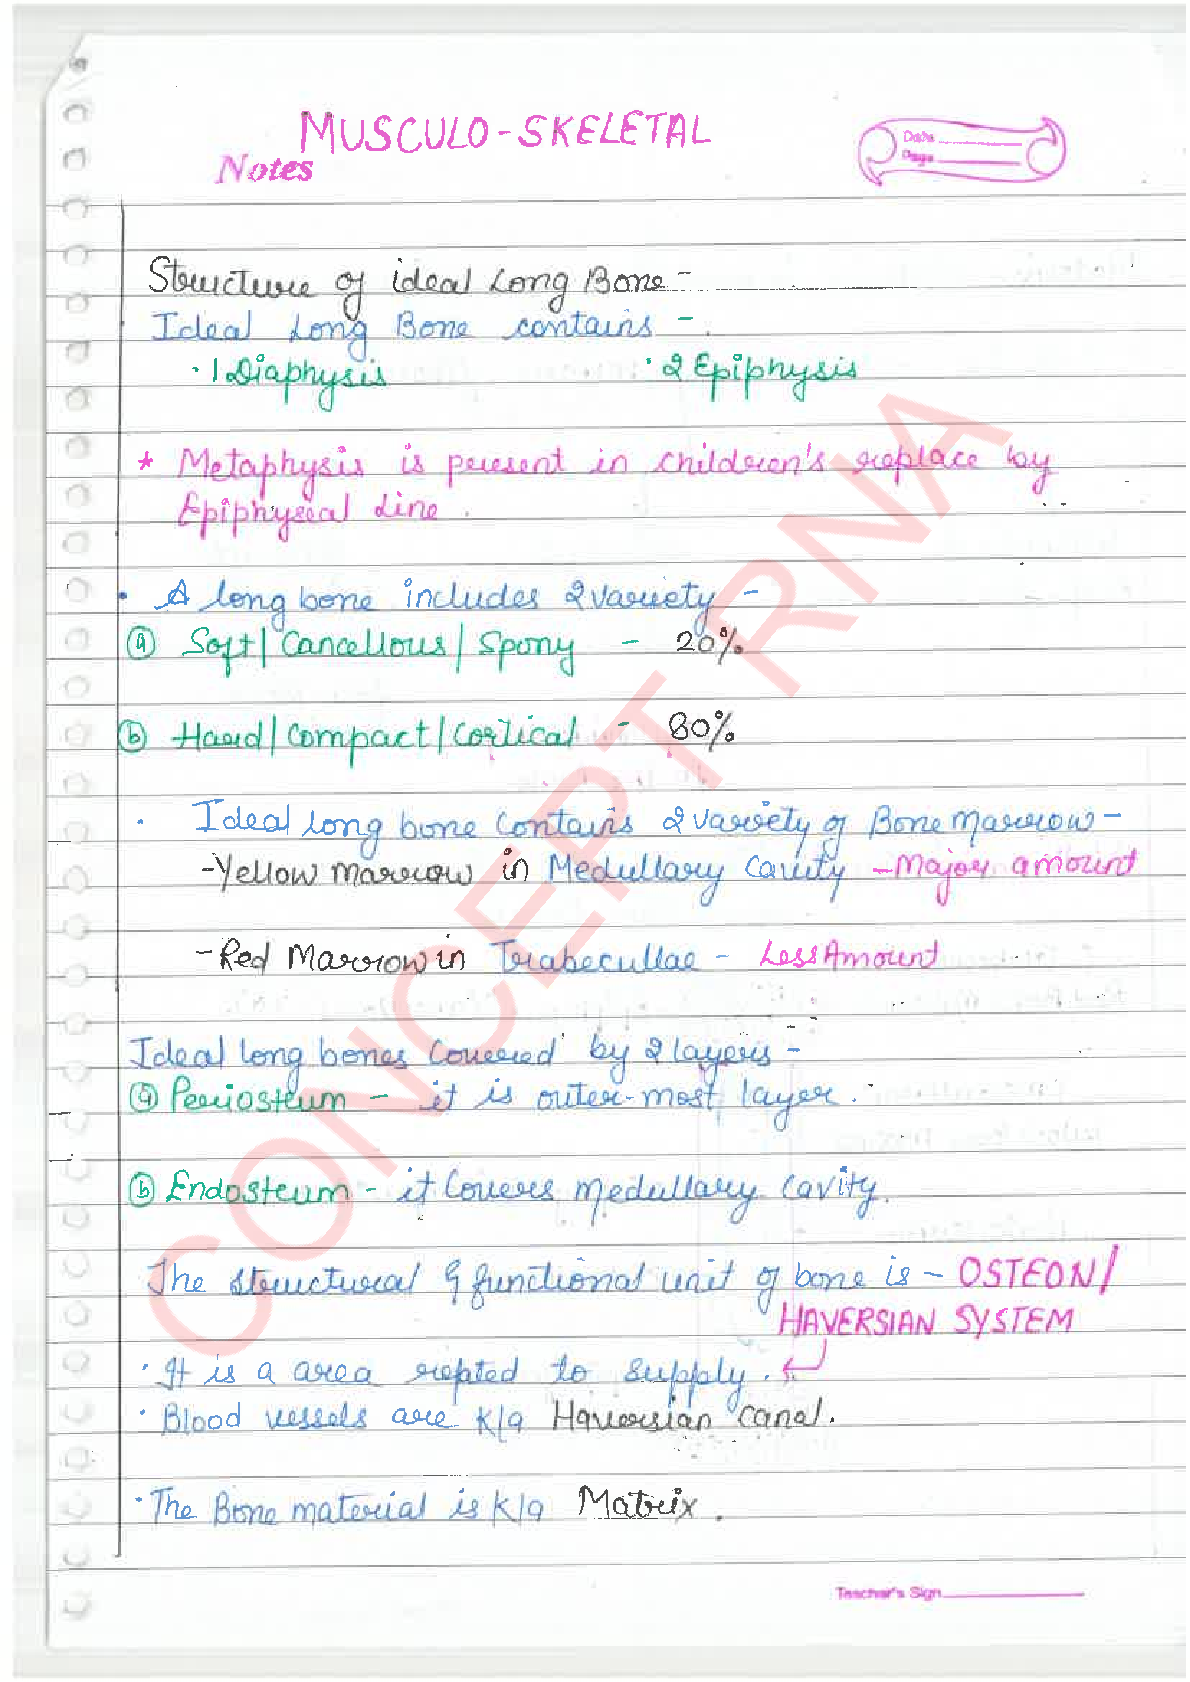 MUSCULO-SKELETAL
Notes
Date
Page
Structure of ideal Long Bone -
Ideal Long Bone contains -
· 1 Diaphysis · 2 Epiphysis
* Metaphysis is present in children's replace by
Epiphyseal Line.
· A long bone includes 2 variety -
(a) Soft/Cancellous/Spony - 20%
(b) Hard/Compact/Cortical - 80%
· Ideal long bone contains 2 variety of Bone Marrow -
- Yellow Marrow in Medullary Cavity - Major amount
- Red Marrow in Trabecullae - Less Amount
Ideal long bones covered by 2 layers -
(a) Periosteum - it is outer-most layer.
(b) Endosteum - it covers medullary cavity.
The structural & functional unit of bone is - OSTEON/
HAVERSIAN SYSTEM
· It is a area to supply.
· Blood vessels are K/a Haversian canal.
· The Bone material is K/a Matrix.
Teacher's Sign
CONCEPT RNA